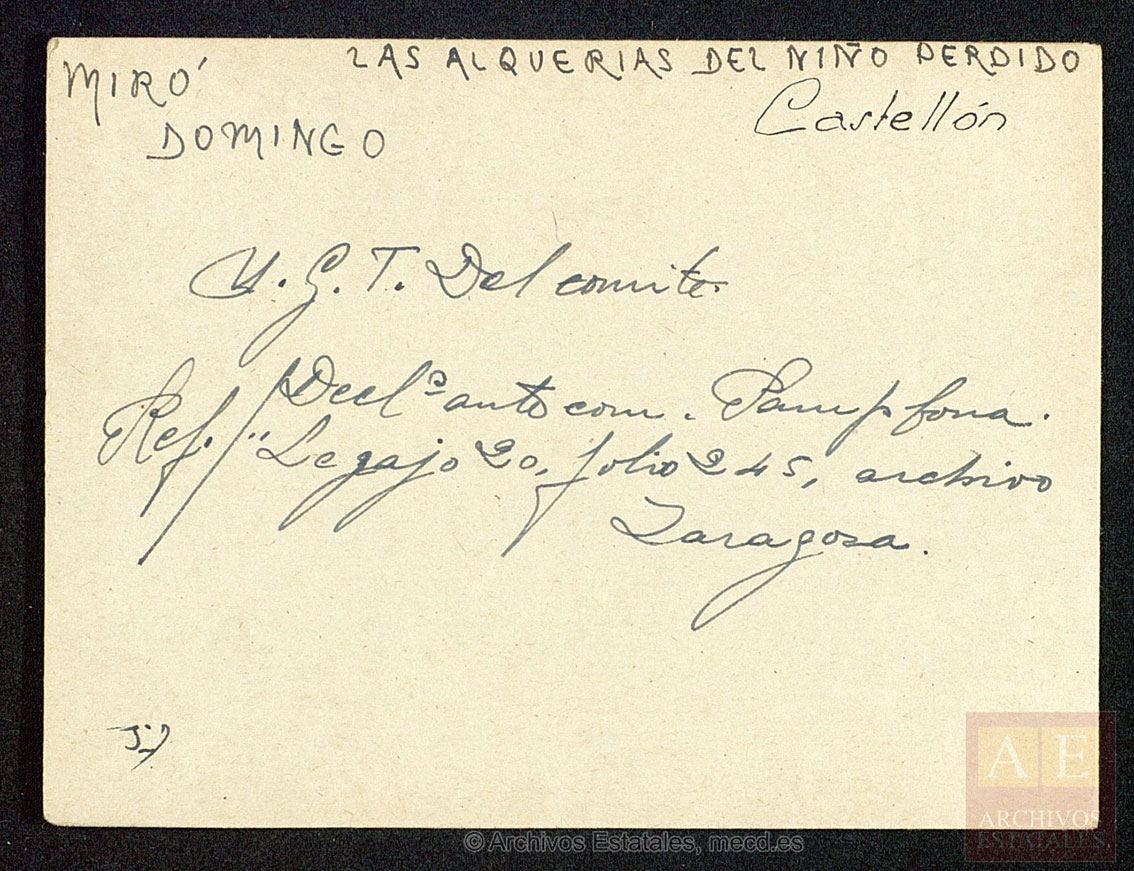 MIRÓ
DOMINGO
LAS ALQUERIAS DEL NIÑO PERDIDO
Castellón
U.G.T. Del comite.
Ref./ Declª ante com. Pamplona.
" Legajo 20, folio 245, archivo
Zaragoza.
© Archivos Estatales, mecd.es
AE
ARCHIVOS
ESTATALES